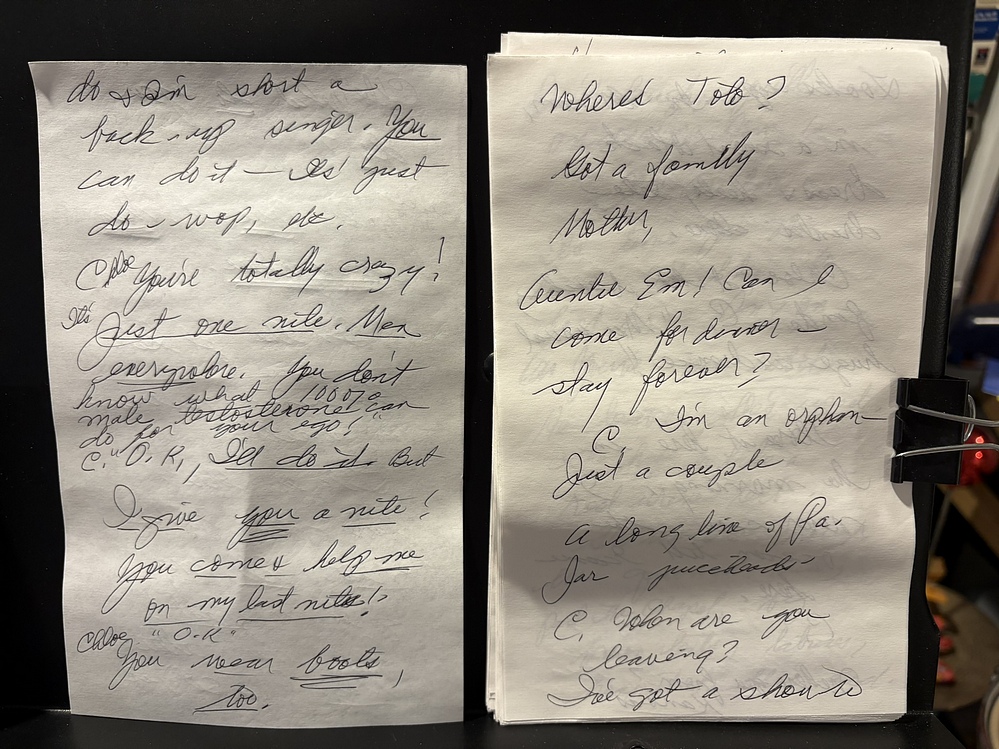 do & I'm short a
back-up singer. You
can do it — It's just
do-wop, etc.
Chloe You're totally crazy!
It's
just one nite. Men
everywhere. You don't
know what 100%
male testosterone can
do for your ego!
C. "O.K., I'll do it. But
I give you a nite!
You come & help me
on my last nite!
Chloe "O.K"
You wear boots,
too.
Wheres Toto?
Got a family
Mother,
Auntie Em! Can I
come for dinner —
stay forever?
I'm an orphan—
C.
Just a couple
A long line of Pa.
Jar juiceheads-
C. When are you
leaving?
I've got a show to